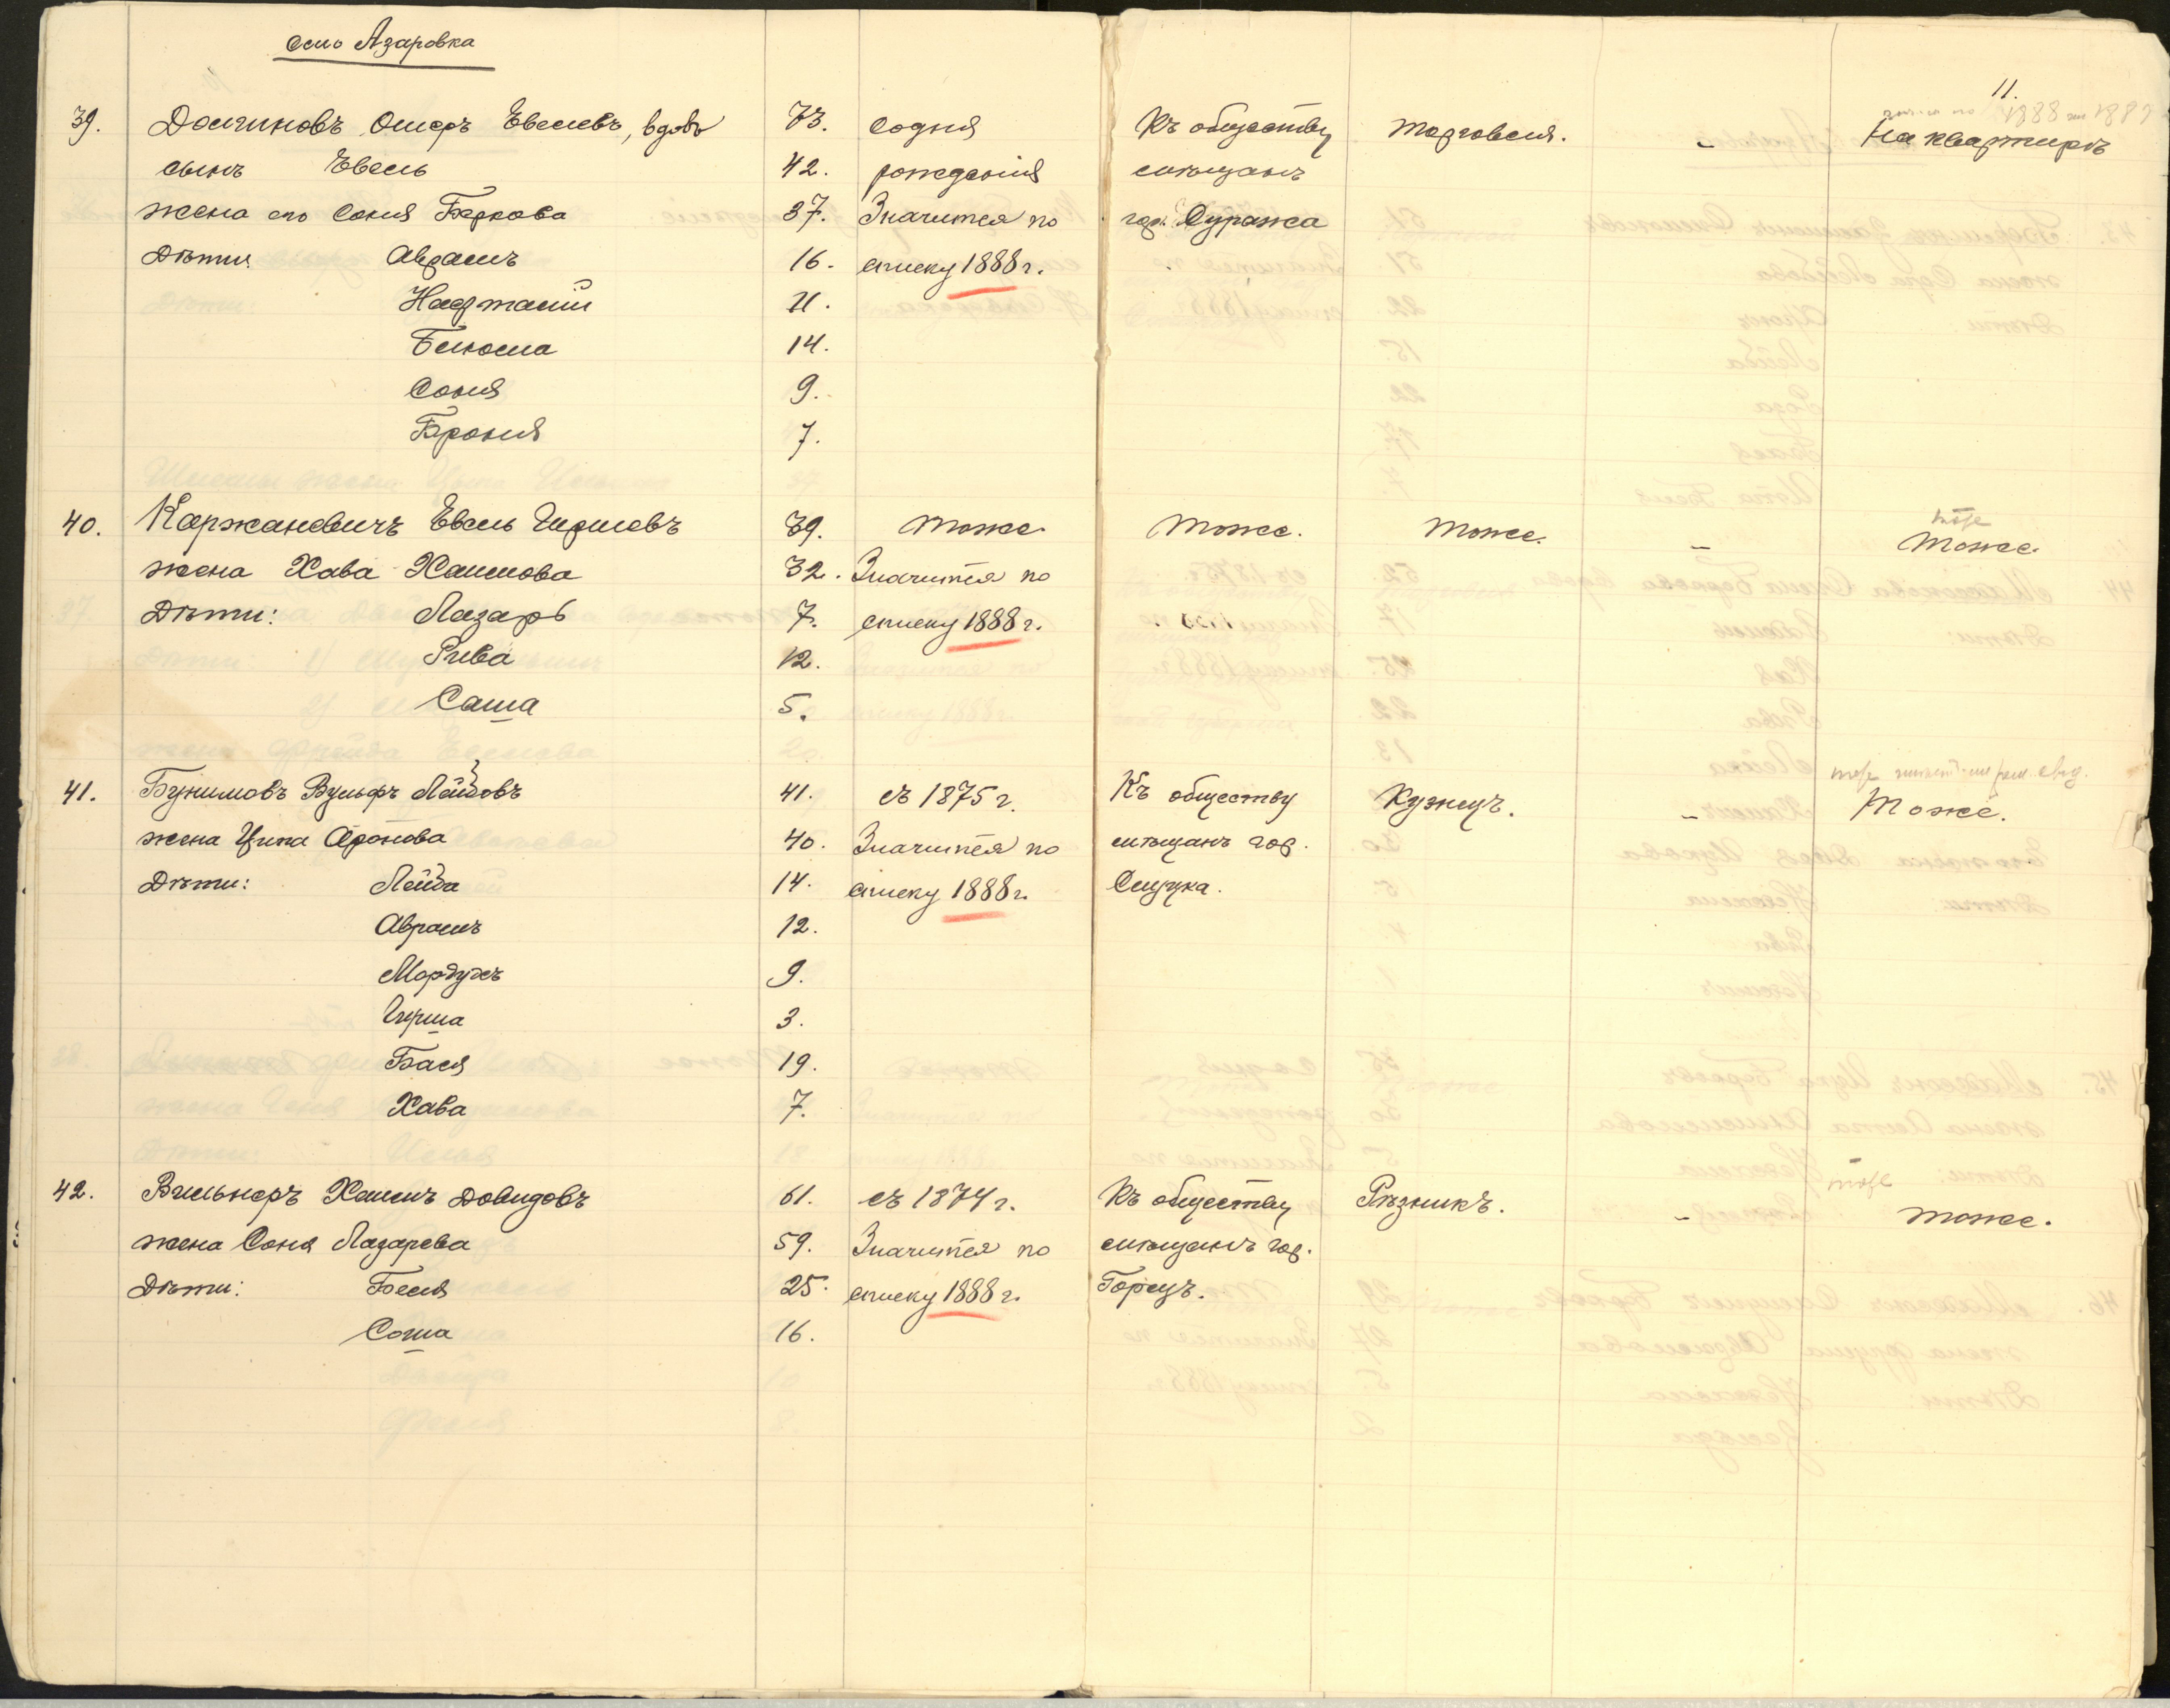 село Азаровка
11.
39. Долгиновъ Ошеръ Евелевъ, вдовъ 73. Содня Къ обществу Торговля. - На квартирѣ
сынъ Евель 42. рожденія мѣщанъ
жена его Соня Беркова 37. Значится по гор. Суража
Дѣти: Абрамъ 16. списку 1888 г.
Нафталій 11.
Блюма 14.
Соня 9.
Броня 7.
тоже
40. Каржаневичъ Евель Гиршевъ 39. Тоже. Тоже. Тоже. - Тоже.
жена Хава Хаимова 32. Значится по
Дѣти: Лазарь 7. списку 1888 г.
Рива 12.
Саша 5.
41. Бунимовъ Вульфъ Лейзовъ 41. съ 1875 г. Къ обществу Кузнецъ. - Тоже.
жена Ципа Аронова 40. Значится по мѣщанъ гор.
Дѣти: Лейза 14. списку 1888 г. Слуцка.
Абрамъ 12.
Мордухъ 9.
Гирша 3.
Бася 19.
Хава 7.
тоже
42. Вильнеръ Хаимъ Довидовъ 61. съ 1874 г. Къ обществу Рѣзникъ. - Тоже.
жена Соня Лазарева 59. Значится по мѣщанъ гор.
Дѣти: Бася 25. списку 1888 г. Горецъ.
Соша 16.